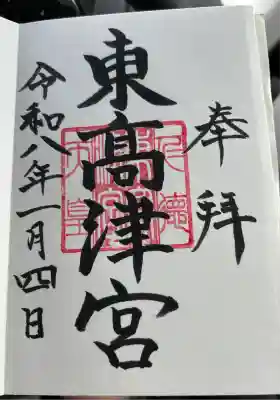 奉拝
東高津宮
令和八年一月四日